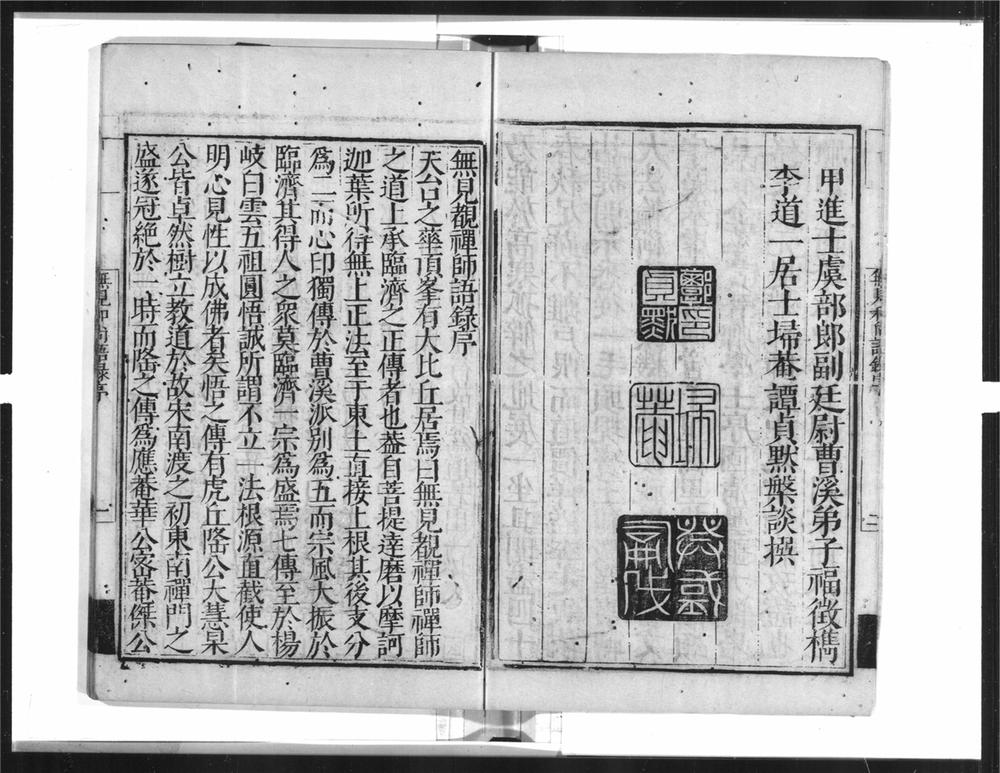 甲進士虞部郎副廷尉曹溪弟子福徵檇
李道一居士埽菴譚貞默槃談撰
埽菴
無見覩禪師語錄序
天台之華頂峯有大比丘居焉曰無見覩禪師禪師
之道上承臨濟之正傳者也葢自菩提達磨以摩訶
迦葉所得無上正法至于東土直接上根其後支分
爲二而心印獨傳於曹溪派別爲五而宗風大振於
臨濟其得人之衆莫臨濟一宗爲盛焉七傳至於楊
岐白雲五祖圓悟誠所謂不立一法根源直截使人
明心見性以成佛者矣悟之傳有虎丘隆公大慧杲
公皆卓然樹立教道於故宋南渡之初東南禪門之
盛遂冠絶於一時而隆之傳爲應菴華公密菴傑公